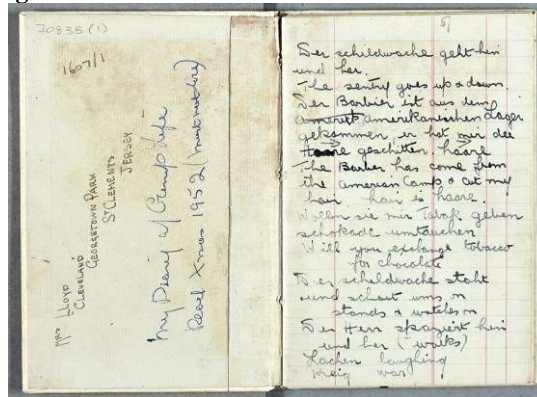 70835 (1)
1607/1
MRS LLOYD
CLEVELAND
GEORGETOWN PARK
ST CLEMENTS
JERSEY
My Diary of Camp Life
Read Xmas 1952 (
5)
Der schildwache geht hin
und her.
The sentry goes up & down.
Der Barbier ist aus dem
amerikanischen Lager
gekommen er hat mir die
geschitten haare
The Barber has come from
the American Camp & cut my
hair hair is haare.
Wollen sie mir Tabak geben
schokade umtauchen
Will you exchange tobacco
for chocolate
Der schildwache steht
und schaut uns an
stands & watches
Der Herr spaziert hin
und her (walks)
Lachen laughing
Kreig war